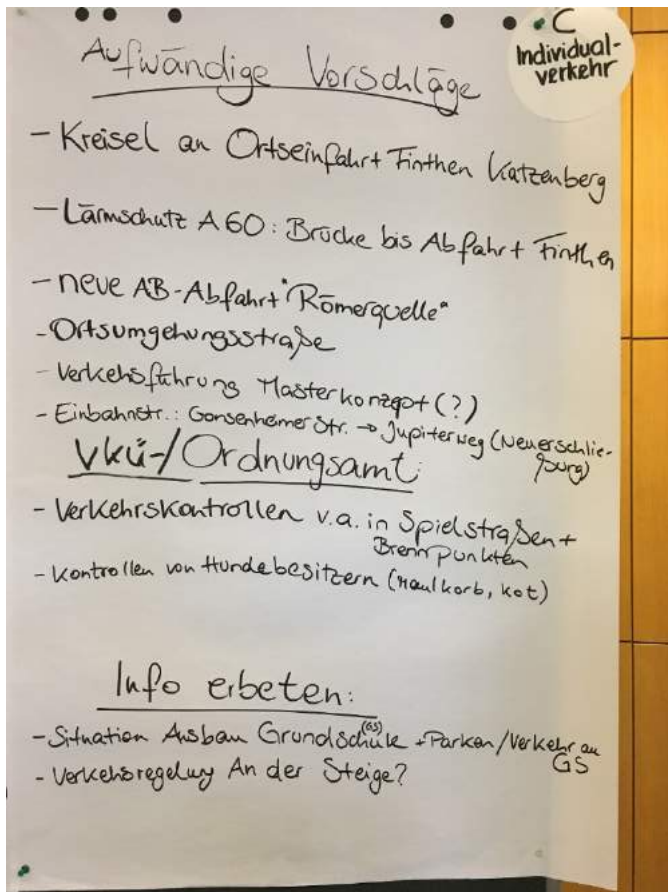 C
Individual-
verkehr
Aufwändige Vorschläge
- Kreisel an Ortseinfahrt Finthen Katzenberg
- Lärmschutz A60: Brücke bis Abfahrt Finthen
- neue AB-Abfahrt "Römerquelle"
- Ortsumgehungsstraße
- Verkehsführung Masterkonzept (?)
- Einbahnstr.: Gonsenheimer Str. → Jupiterweg (Neuerschlie-
ßung)
Vkü-/Ordnungsamt:
- Verkehrskontrollen v.a. in Spielstraßen +
Brennpunkten
- Kontrollen von Hundebesitzern (Maulkorb, Kot)
Info erbeten:
- Situation Ausbau Grundschule (GS) + Parken/Verkehr an
GS
- Verkehsregelung An der Steige?